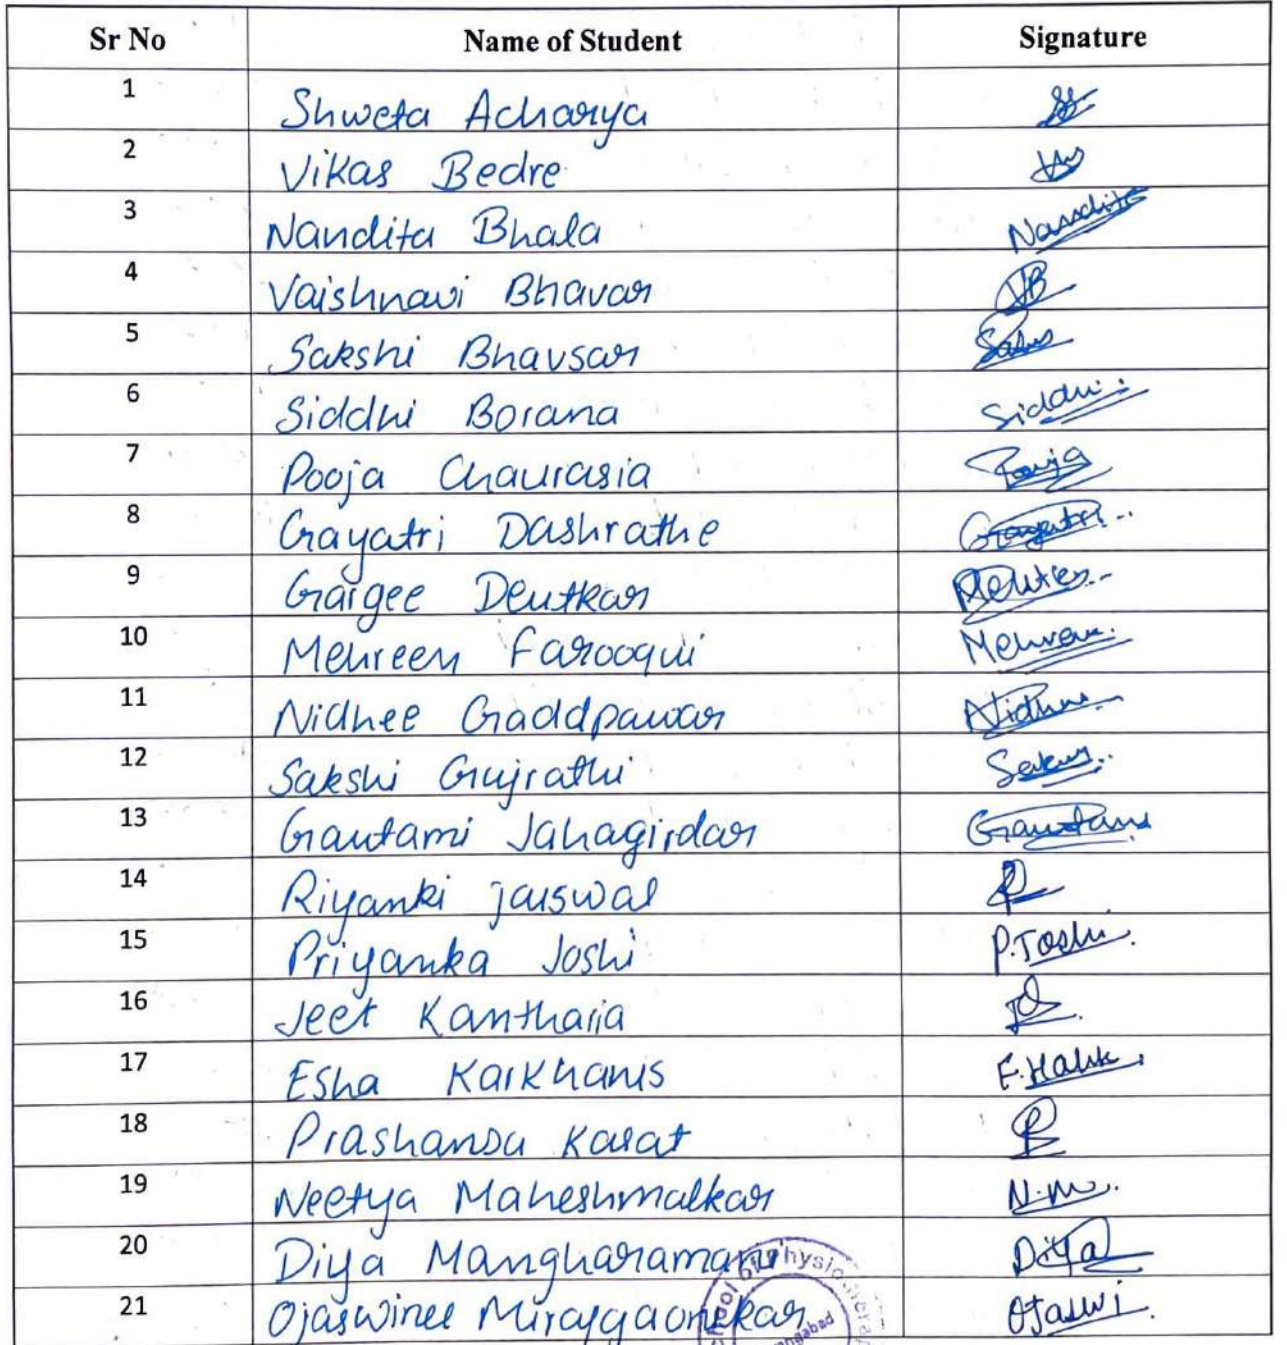 Sr No Name of Student Signature
1 Shweta Acharya
2 Vikas Bedre
3 Nandita Bhala Nandita
4 Vaishnavi Bhavar VB
5 Sakshi Bhavsar
6 Siddhi Borana Siddhi
7 Pooja Chaurasia Pooja
8 Gayatri Dashrathe Gayatri
9 Gargee Deutkar
10 Mehreen Farooqui Mehreen
11 Nidhee Gaddpawar
12 Sakshi Gujrathi
13 Gautami Jahagirdar Gautami
14 Riyanki jaiswal
15 Priyanka Joshi P. Joshi
16 Jeet Kantharia
17 Esha Karkhanis
18 Prashansa Karat
19 Neetya Maheshmalkar N.M.
20 Diya Mangharamani Diya
21 Ojaswinee Mirajgaonekar Ojaswi
School of Physiotherapy